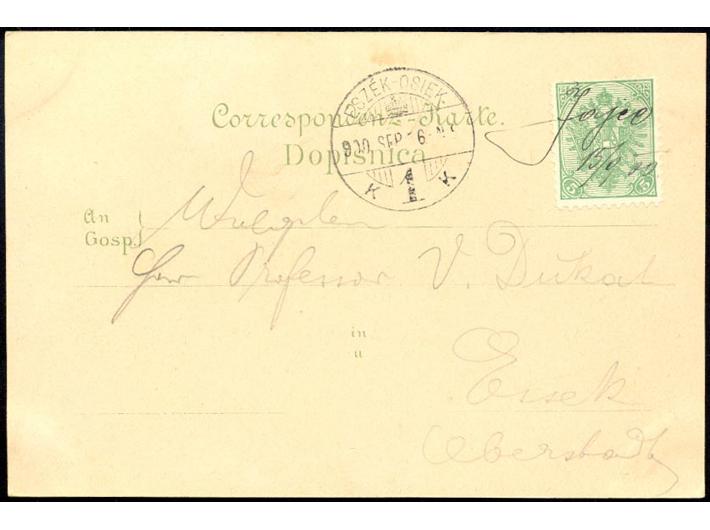 Correspondenz-Karte.
Dopisnica
ESZÉK-OSIEK.
900 SEP 6
K 1 K
Jajce
15/9 00
5 5
An
Gosp.
Herr Professor V. Dukat
in
u
Essek
Oberstadt